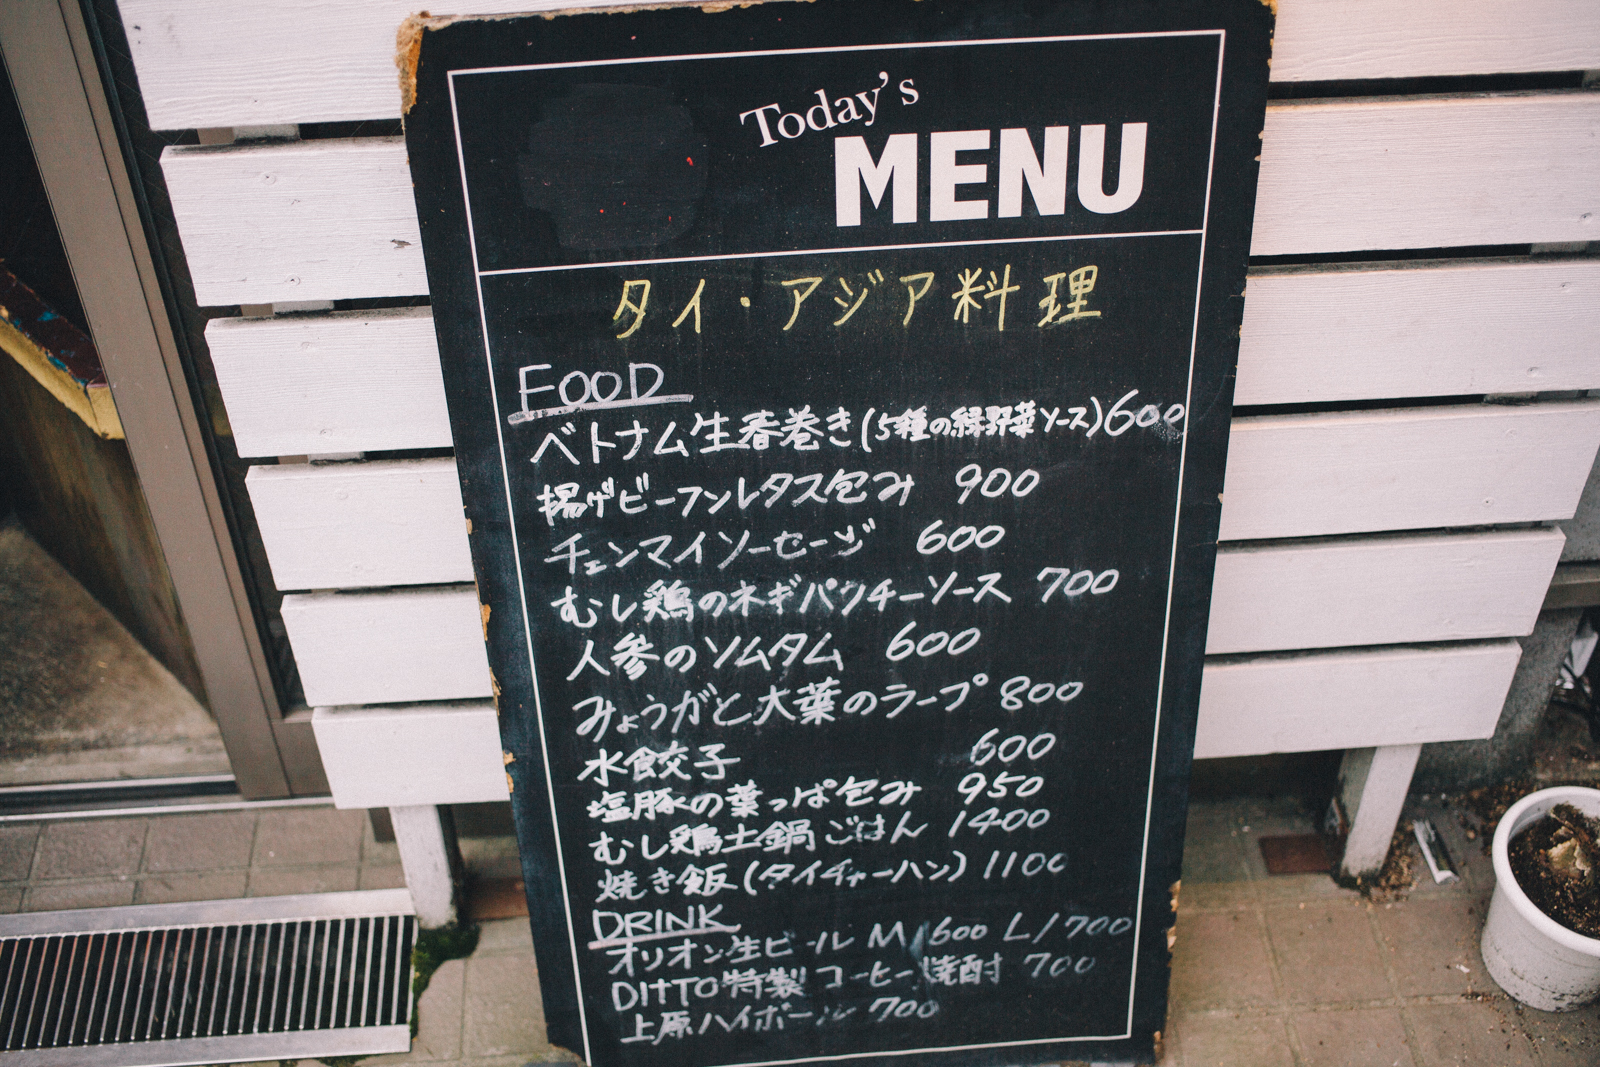 Today's
MENU
タイ・アジア料理
FOOD
ベトナム生春巻き(5種の緑野菜ソース)600
揚げビーフンレタス包み 900
チェンマイソーセージ 600
むし鶏のネギパクチーソース 700
人参のソムタム 600
みょうがと大葉のラープ 800
水餃子 600
塩豚の葉っぱ包み 950
むし鶏土鍋ごはん 1400
焼き飯(タイチャーハン) 1100
DRINK
オリオン生ビール M/600 L/700
DITTO特製コーヒー焼酎 700
上原ハイボール 700